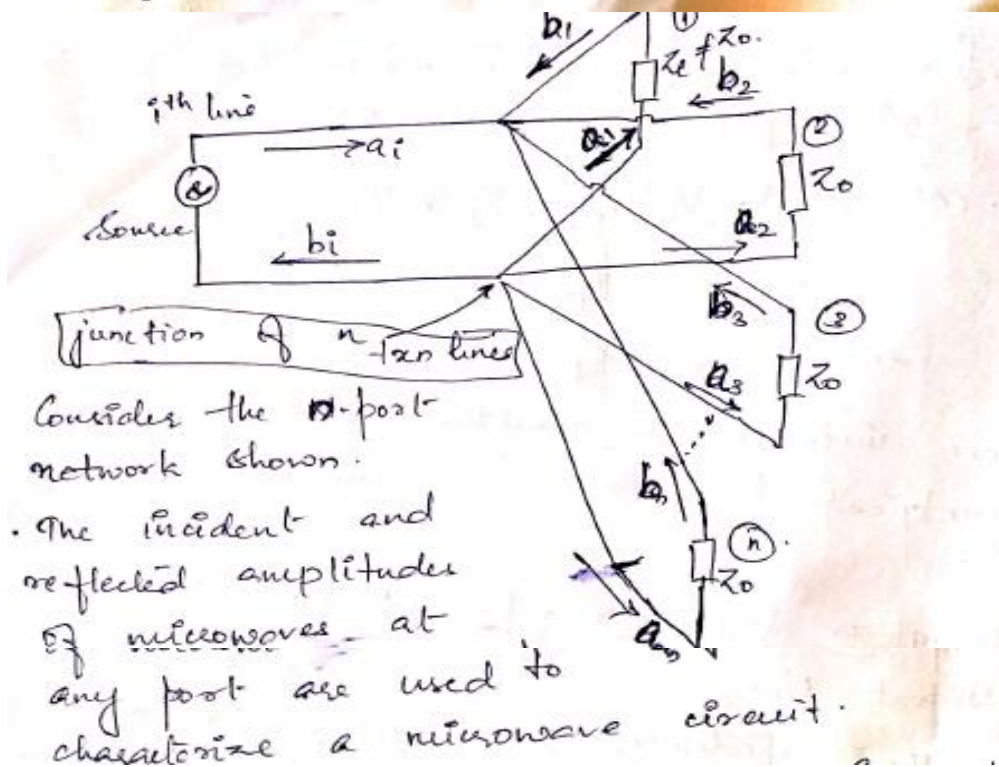 ①
b1
Zℓ ≠ Z0.
b2
ith line
ai
a1
②
Z0
Source
bi
a2
b3
③
Z0
junction of n txn lines
a3
Consider the n-port
network shown.
bn
ⓝ
Z0
an
. The incident and
reflected amplitudes
of microwaves at
any port are used to
characterize a microwave circuit.